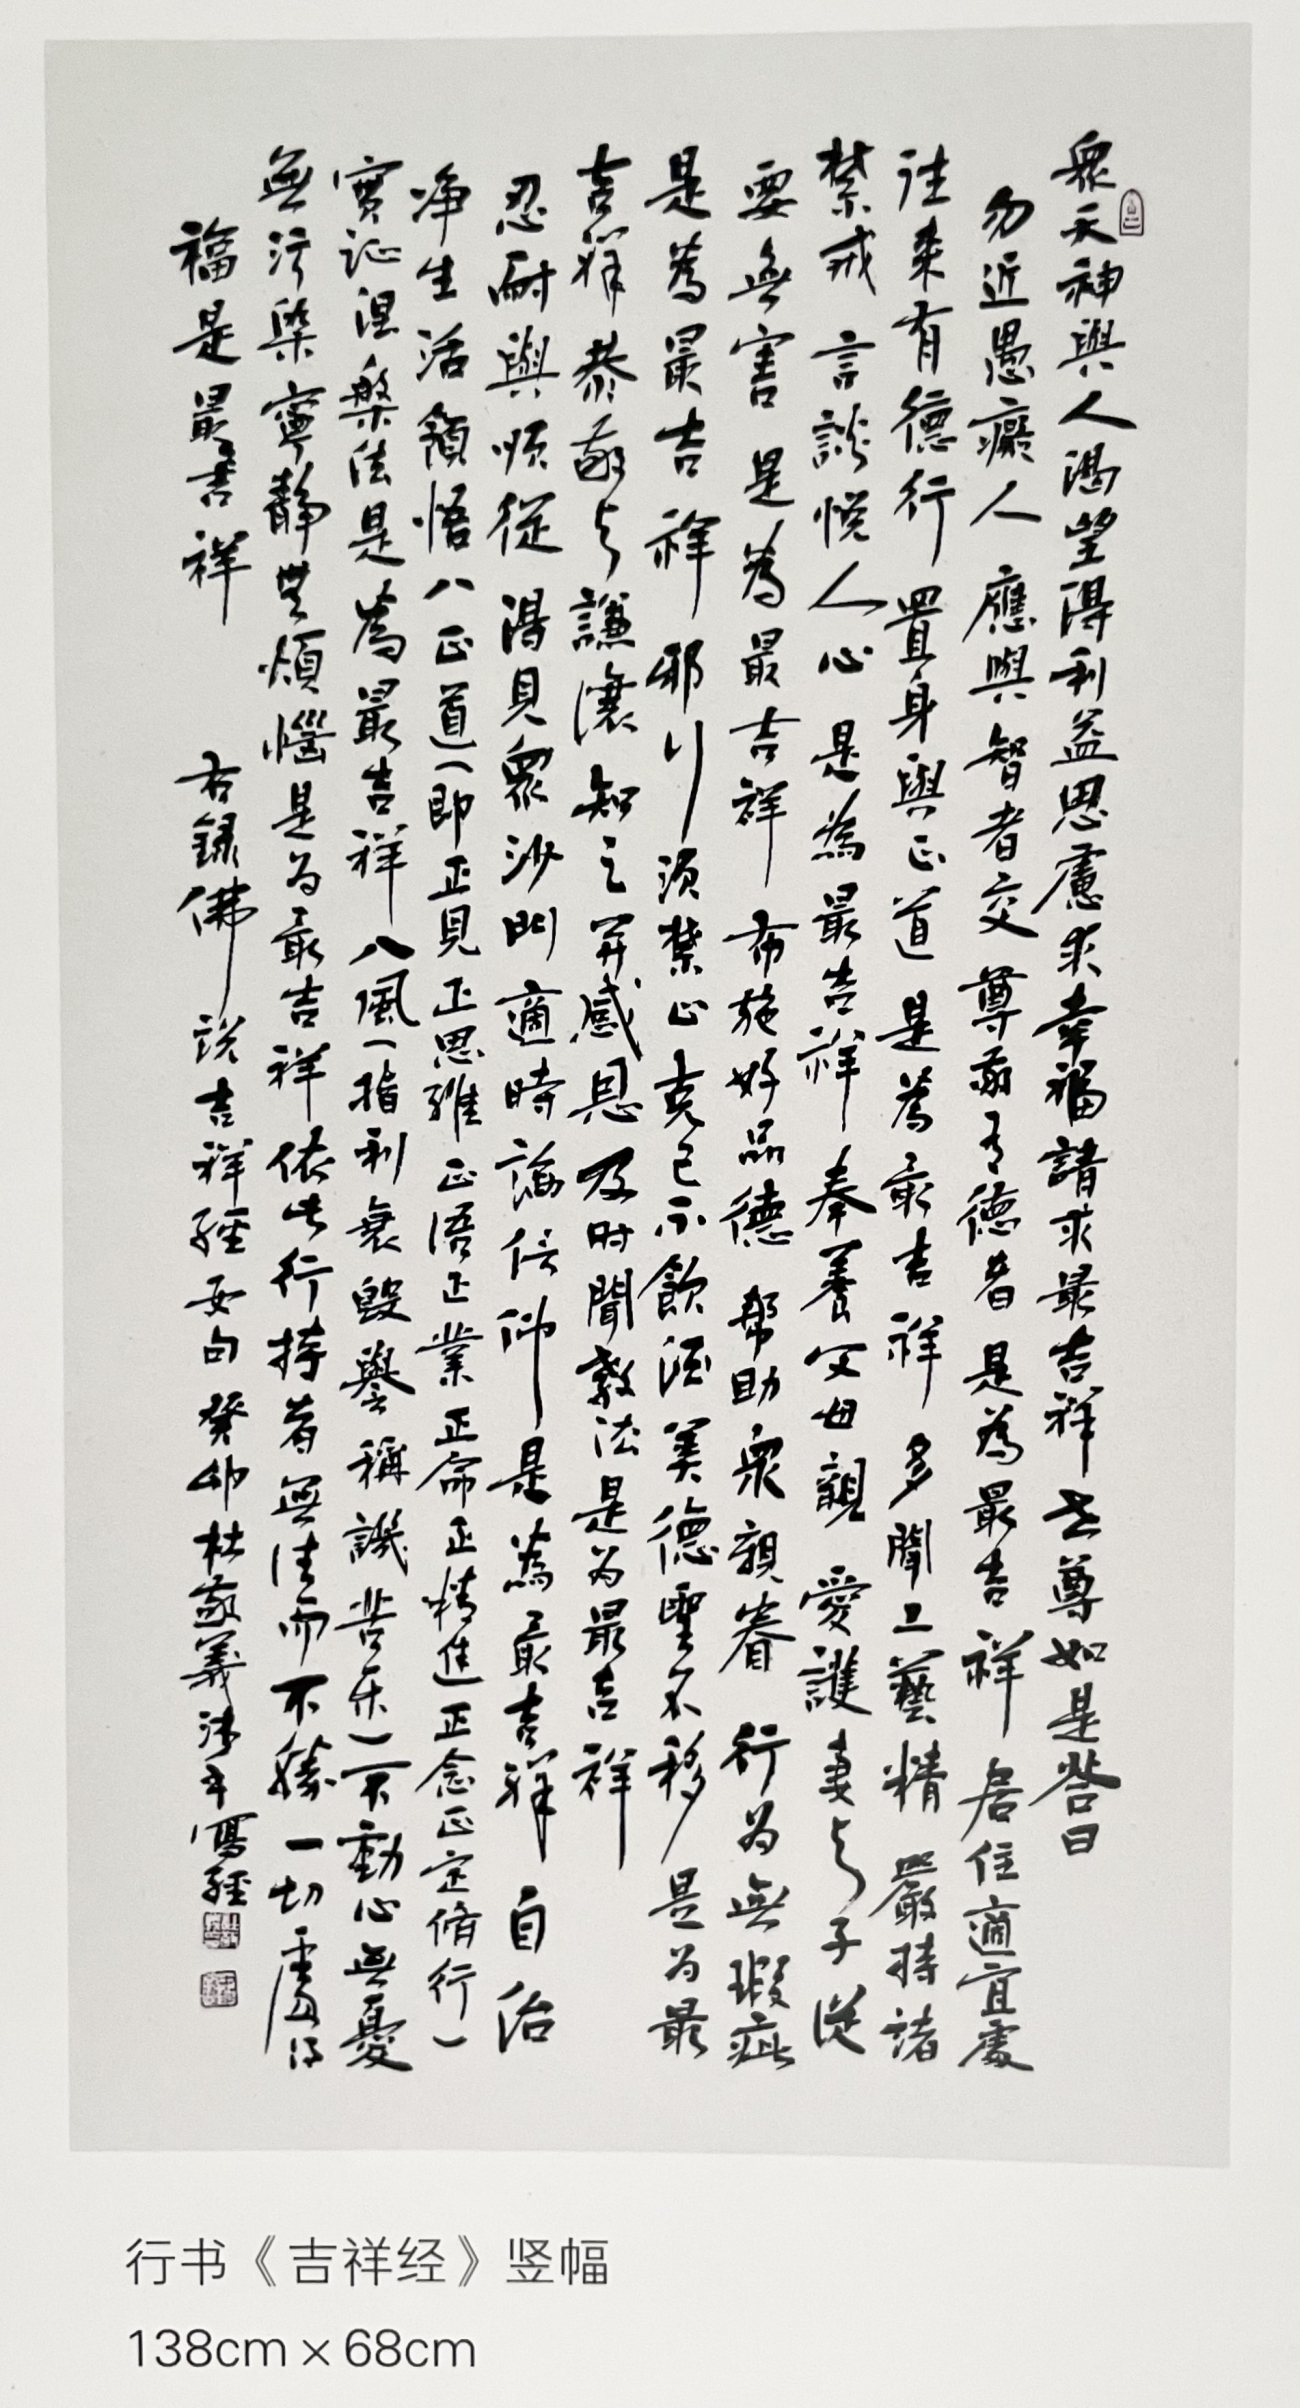 眾天神與人渴望得利益思慮求幸福請求最吉祥世尊如是答曰
勿近愚癡人應與智者交尊敬有德者是為最吉祥居住適宜處
往來有德行置身與正道是為最吉祥多聞工藝精嚴持諸
禁戒言談悅人心是為最吉祥奉養父母親愛護妻与子從
要無害是為最吉祥布施好品德幫助眾親眷行为無瑕疵
是為最吉祥邪行須禁止克己不飲酒美德堅不移是为最
吉祥恭敬与謙讓知足并感恩及时聞教法是为最吉祥
忍耐與順從得見眾沙門適時論信仰是為最吉祥自治
净生活領悟八正道(即正見正思維正語正業正命正精進正念正定脩行)
實证涅槃法是為最吉祥八風(指利衰毀譽稱譏苦乐)不動心無憂
無污染寧静無煩惱是为最吉祥依此行持者無往而不勝一切處得
福是最吉祥 右録佛说吉祥經 癸卯杜敬義沐手寫經
行书《吉祥经》竖幅
138cm×68cm